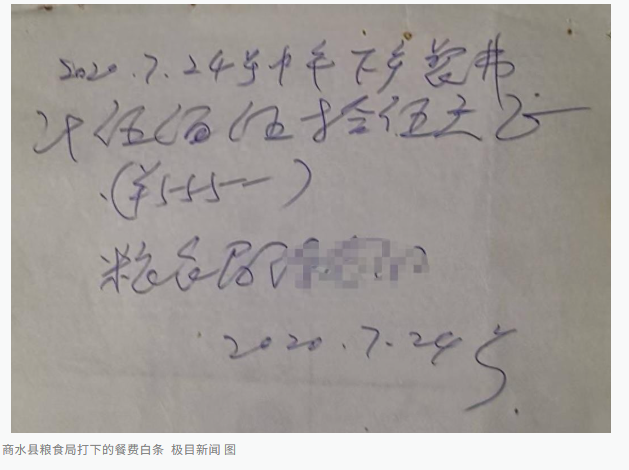 2020.7.24号中午下乡餐费
计伍佰伍拾伍元正
(¥555—)
粮食局
2020.7.24号
商水县粮食局打下的餐费白条 极目新闻 图